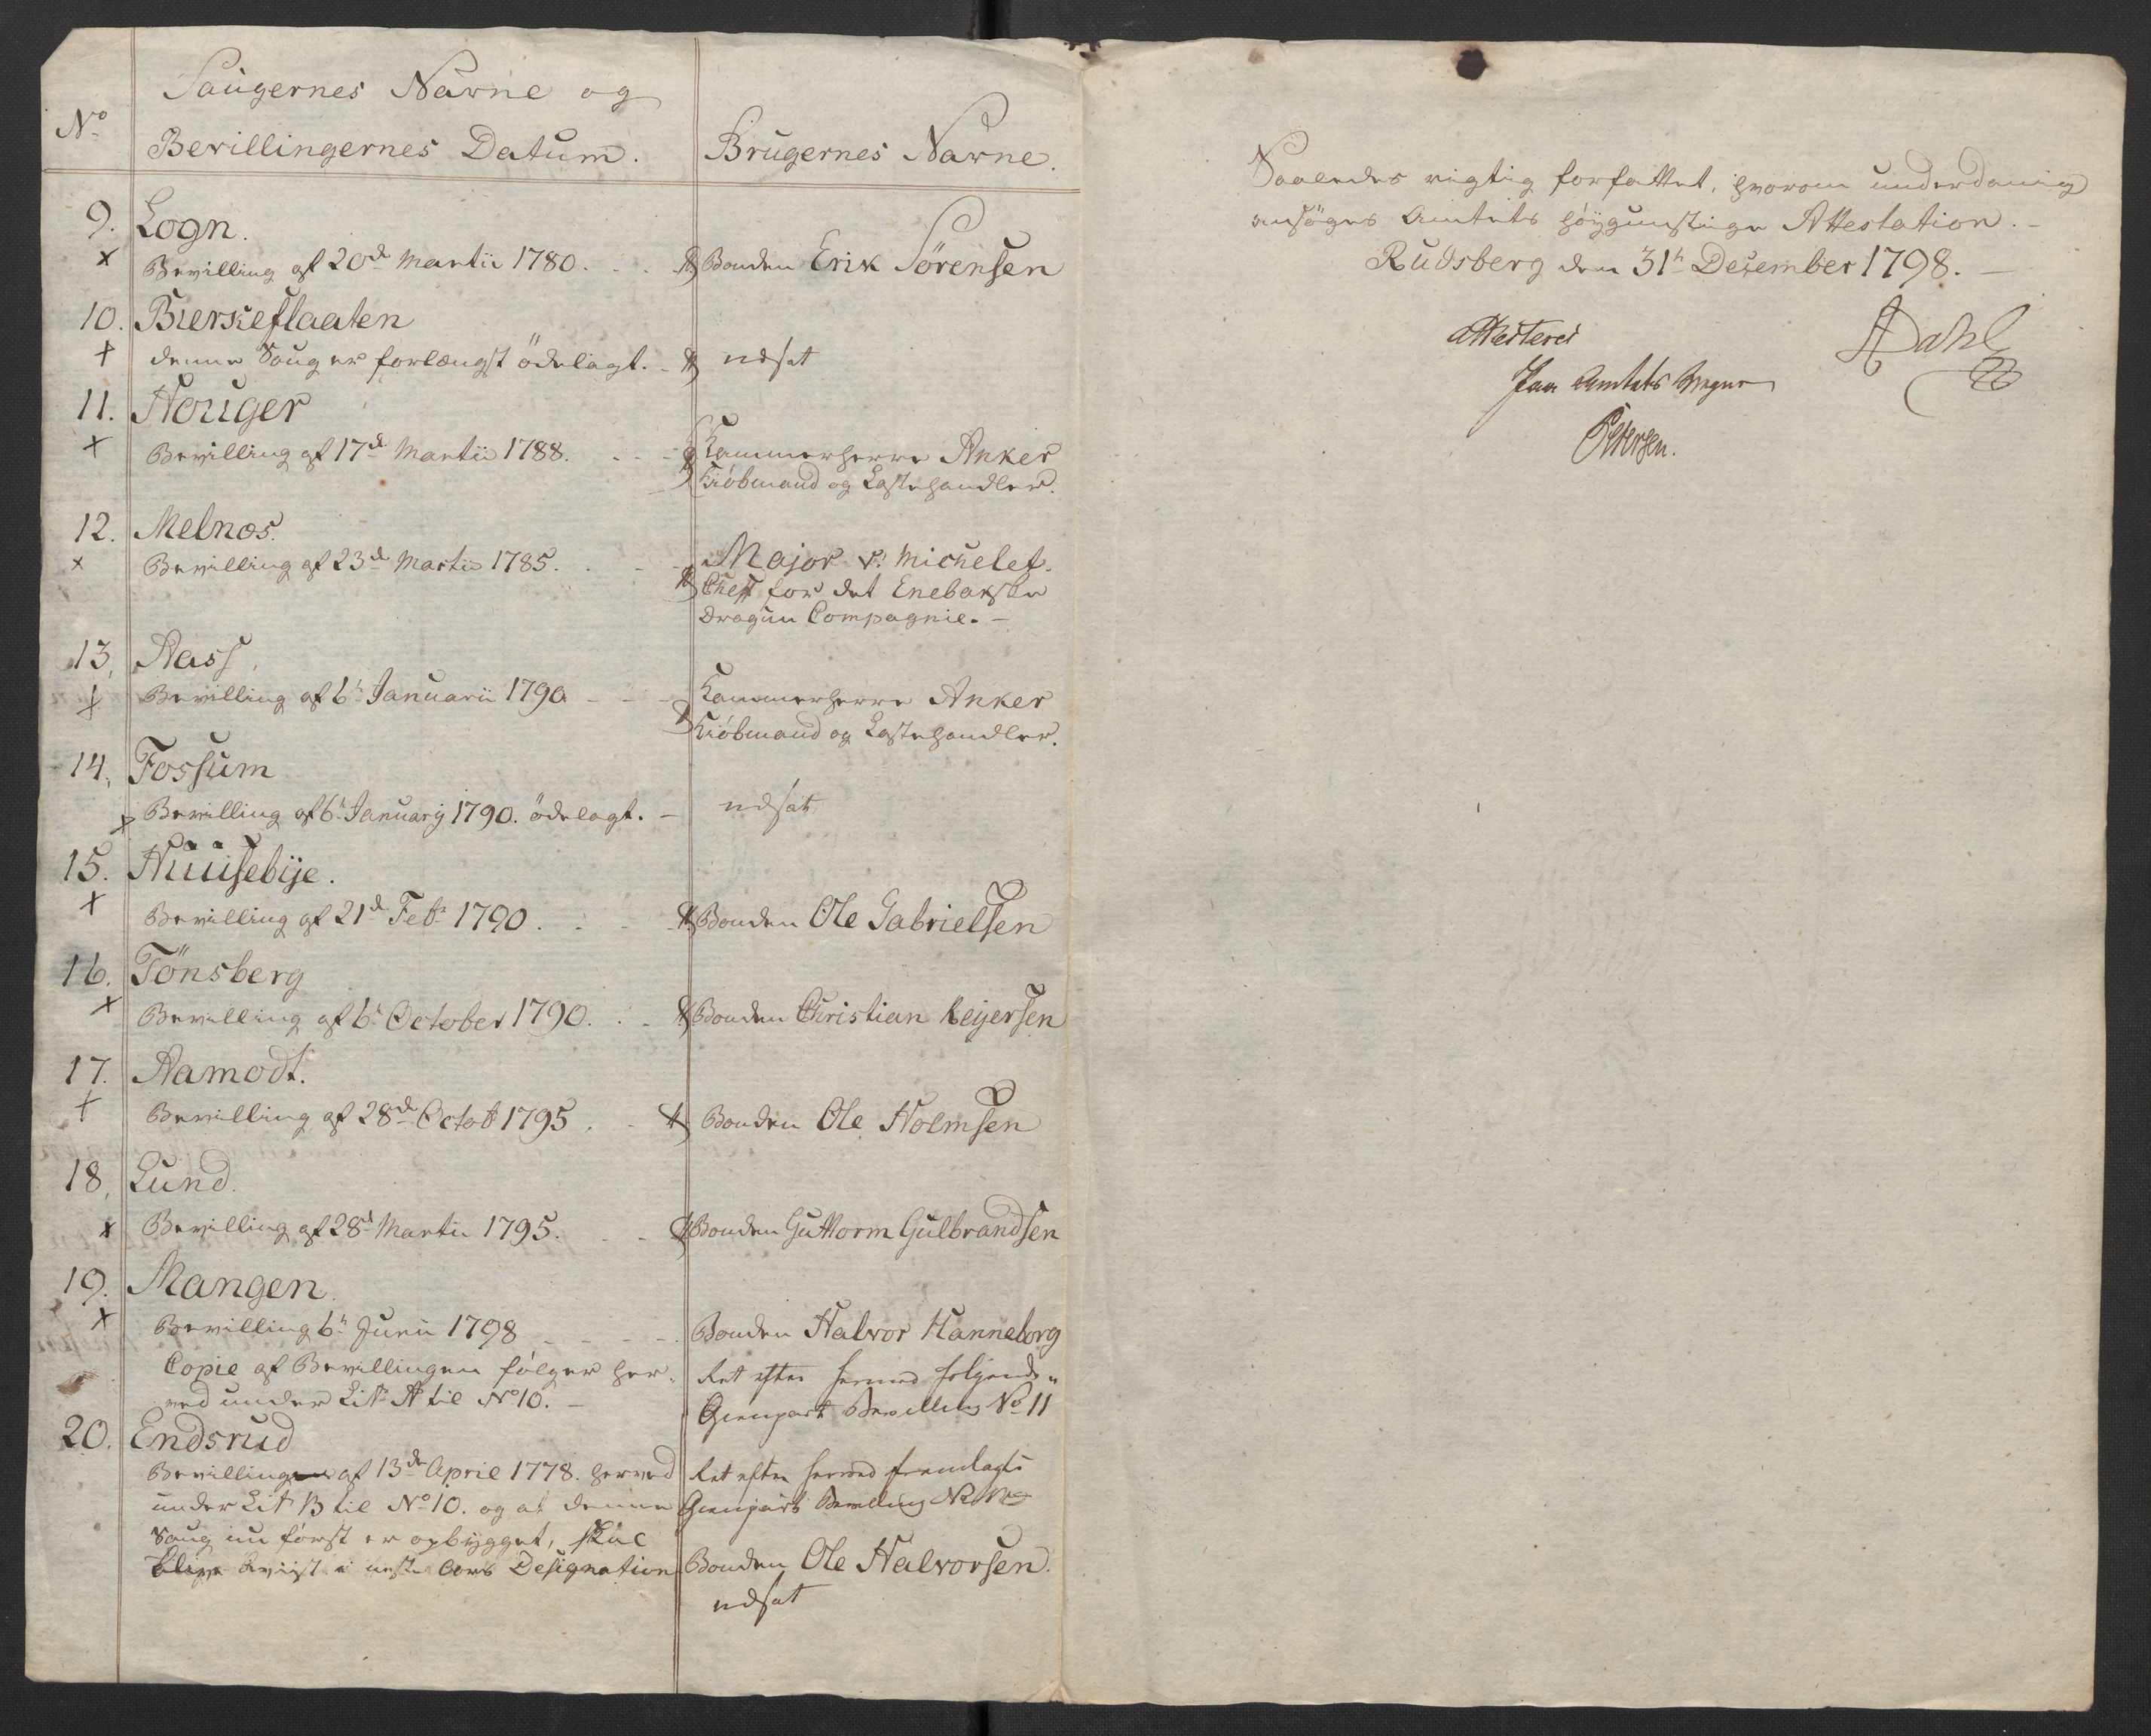 No
Saugernes Navne og
Bevillingernes Datum.
Brugernes Navne.
9. Logn.
x Bevilling af 20d Martii 1780. Bonden Erik Sörensen
10. Bierkeflaaten
x denne Saug er forlængst ödelagt. udsat
11. Houger
x Bevilling af 17d Martii 1788. Kammerherre Anker
Kiöbmand og Lastehandler.
12. Melnæs.
x Bevilling af 23d Martii 1785. Major v: Michelet.
Cheff for det Enebakske
Dragun Compagnie.
13. Aass.
x Bevilling af 6t Januarii 1790 Kammerherre Anker
Kiöbmand og Lastehandler.
14. Fossum
x Bevilling af 6t Januarij 1790. ödelagt. udsat
15. Huusebÿe.
x Bevilling af 21d Feb: 1790. Bonden Ole Gabrielsen
16. Tönsberg
x Bevilling af 6t October 1790. Bonden Christian Leÿersen
17. Aamodt.
x Bevilling af 28d Octob 1795. Bonden Ole Holmsen
18. Lund.
x Bevilling af 28d Martii 1795. Bonden Guttorm Gulbrandsen
19. Mangen.
x Bevilling 6t Junii 1798 Bonden Halvor Hanneborg
Copie af Bevillingen fölger her-
ved under Lit: A til No 10.
Ret efter hermed folgende
Gienpart Bevilling No 11
20. Endsrud
Bevilling af 13de April 1778. herved
under Lit B til No 10. og at denne
Saug nu först er opbygget, skal
blive beviist i neste Aars Designation
Ret efter herved fremlagte
Gienpart Bevilling
Bonden Ole Halvorsen.
udsat
Saaledes rigtig forfattet, hvorom underdanig
ansöges Amtets höygunstige Attestation.
Rudsberg den 31t December 1798.
Dahl
Attesteres
Paa Amtets Vegne
Petersen.